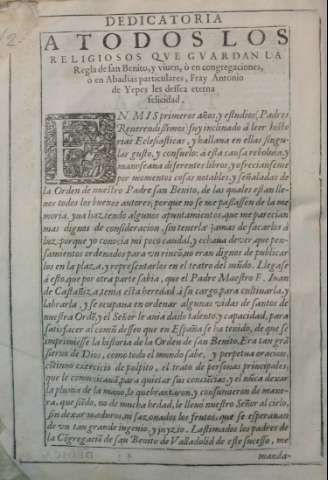 2.
DEDICATORIA
A TODOS LOS
RELIGIOSOS QVE GVARDAN LA
Regla de san Benito, y viuen, ò en congregaciones,
ò en Abadias particulares, Fray Antonio
de Yepes les dessea eterna
felicidad.
EN MIS primeros años, y estudios, Padres
Reuerendissimos, fuy inclinado à leer histo
rias Ecclesiasticas, y hallaua en ellas singu
lar gusto, y consuelo: à esta causa reboluia, y
manoseaua diferentes libros, y ofrecianseme
por momentos cosas notables, y señaladas de
la Orden de nuestro Padre san Benito, de las quales estan lle
nos todos los buenos autores, porque no se me passassen de la me
moria, yua haziendo algunos apuntamientos, que me parecian
mas dignos de consideracion, sin tenerla jamas de sacarlos à
luz, porque yo conocia mi poco caudal, y echaua de ver que pen-
samientos ordenados para vn rincõ, no eran dignos de publicar
los en la plaça, y representarlos en el teatro del mũdo. Llegase
à esto, que por otra parte sabia, que el Padre Maestro F. Iuan
de Castañiz, a tenia esta heredad à su cargo, para cultiuarla, y
labrarla, y se ocupaua en ordenar algunas vidas de santos de
nuestra Ordẽ, y el Señor le auia dado talento, y capacidad, para
satisfacer al comũ desseo que en España se ha tenido, de que se
imprimiesse la historia de la Orden de san Benito. Era tan grã
sieruo de Dios, como todo el mundo sabe, y perpetua oracion,
cõtinuo exercicio de pulpito, el trato de personas principales,
que le comunicauã, para quietar sus conciẽcias, y el nũca dexar
la pluma de la mano, le quebrantaron, y consumieron de mane-
ra, que siẽdo, no de mucha hedad, le lleuo nuestro Señor al cielo,
sin dexar maduros, ni sazonados los frutos, que se esperauan
de vn tan grande ingenio, y juyzio. Lastimados los padres de
la Cõgregaciõ de san Benito de Valladolid de este sucesso, me
manda-